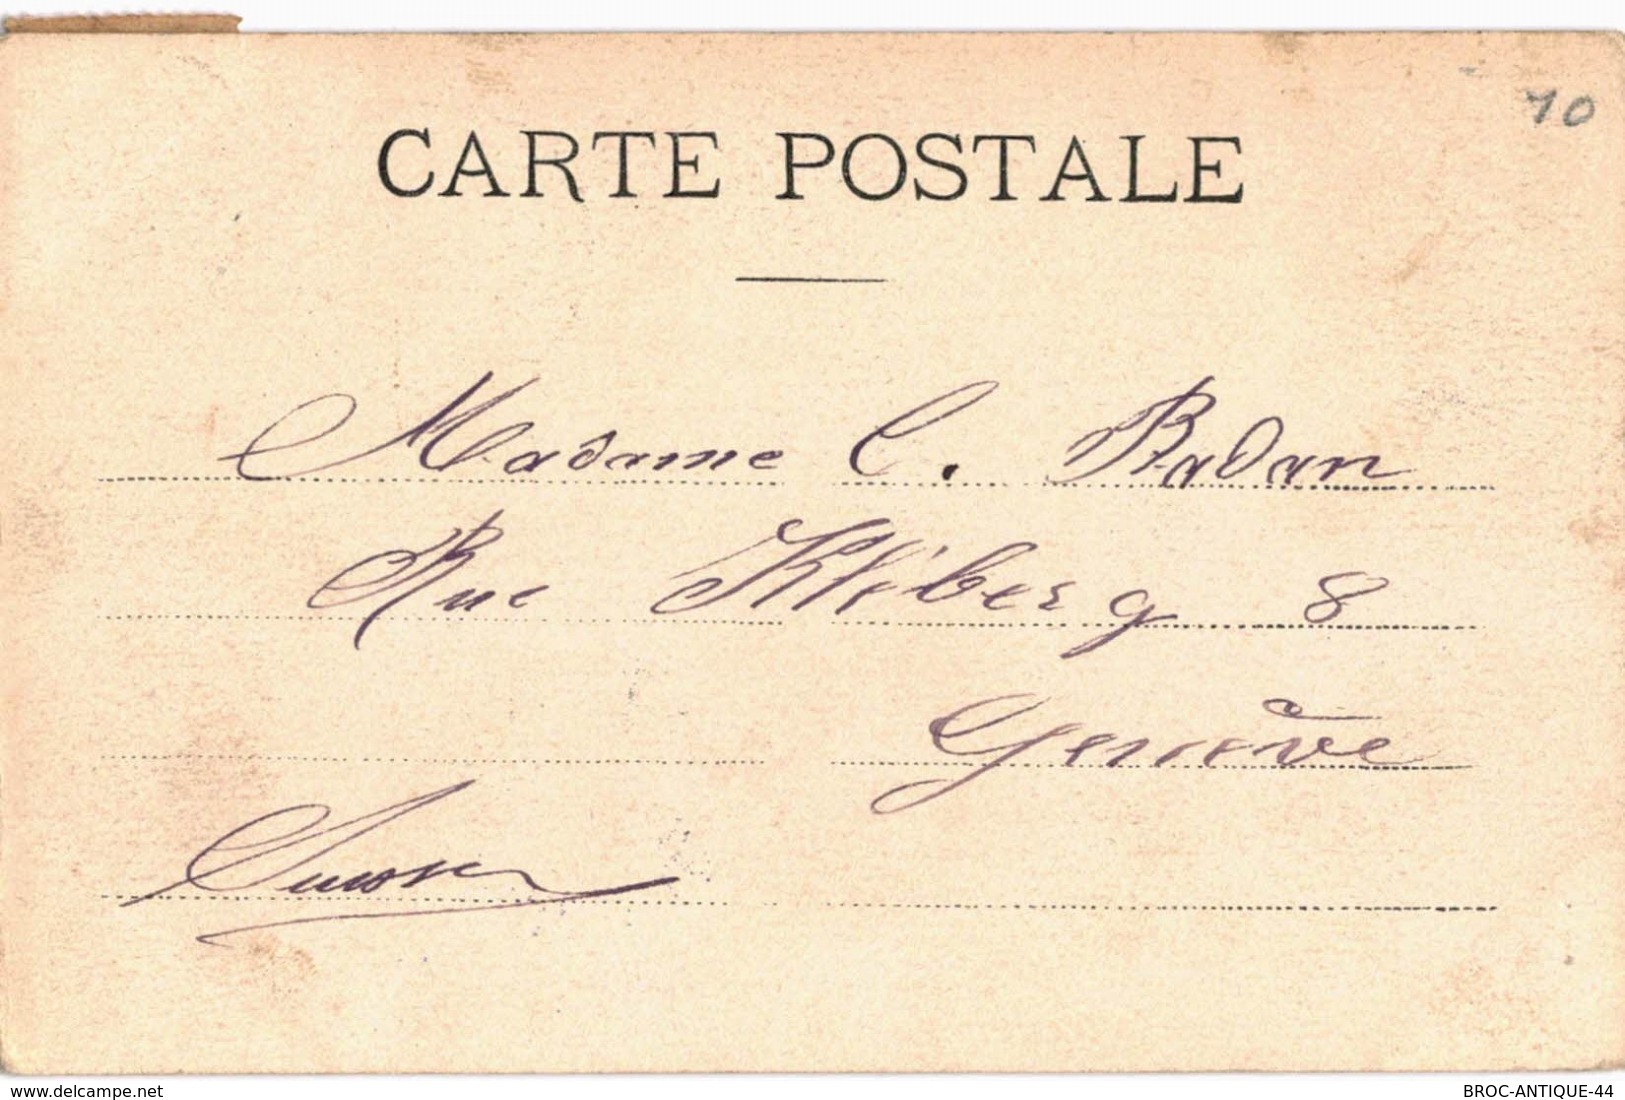 10
CARTE POSTALE
Madame C. Badan
Rue Kléberg 8
Genève
Suisse
www.delcampe.net
BROC-ANTIQUE-44